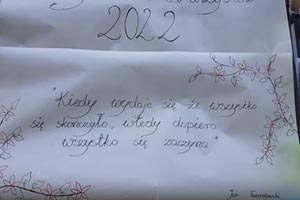 2022
"Kiedy wydaje się że wszystko
się skończyło, wtedy dopiero
wszystko się zaczyna"